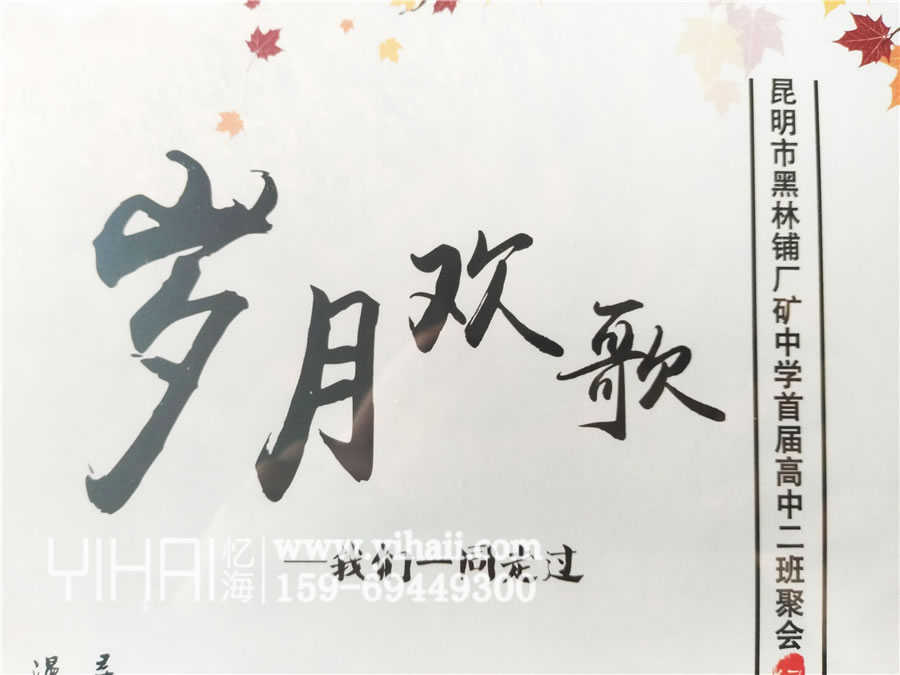 岁月欢歌
——我们一同走过
昆明市黑林铺厂矿中学首届高中二班聚会
YIHAI 忆海
www.yihaii.com
159-69449300